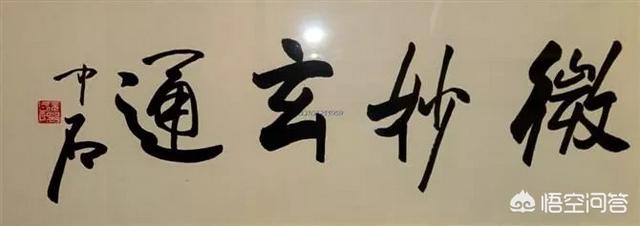 微妙玄通
中石
悟空问答